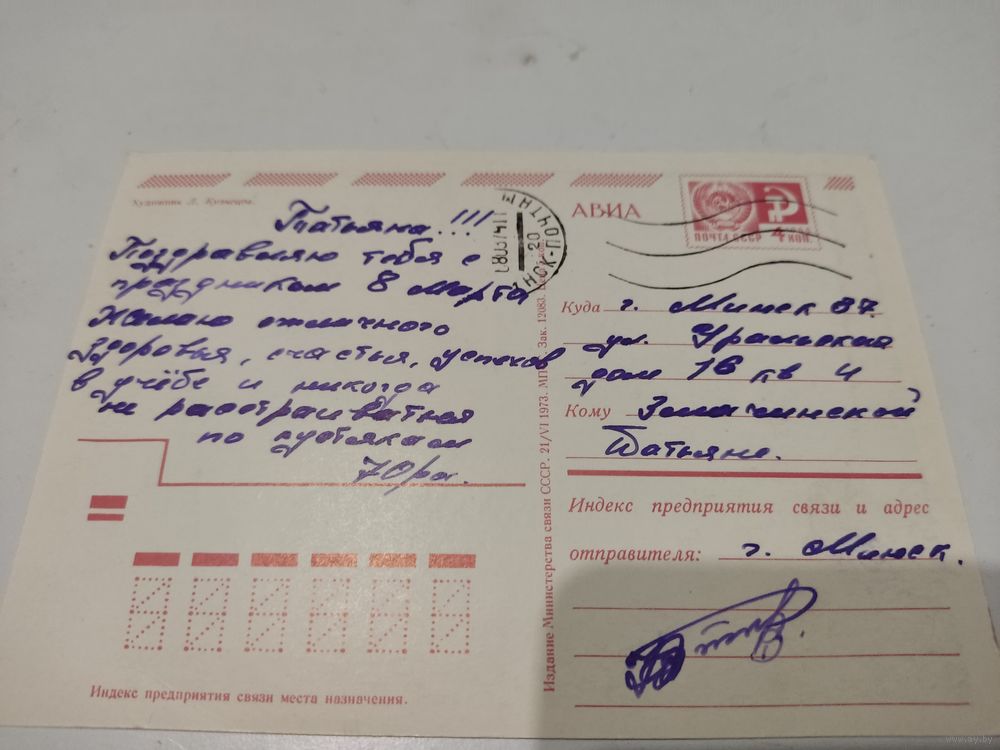 Художник Л. Кузнецов.
Татьяна!!!
Поздравляю тебя с
праздником 8 Марта
Желаю отличного
здоровья, счастья, успехов
в учёбе и никогда
не расстраиваться
по пустякам
Юра.
АВИА
ПОЧТА СССР
4 КОП.
МИНСК-ПОЧТАМТ
20
Куда г. Минск 87.
ул. Уральская
дом 16 кв 4
Кому
Татьяне.
Индекс предприятия связи и адрес
отправителя: г. Минск.
Издание Министерства связи СССР. 21/VI 1973. МПФ. Зак. 12083.
Индекс предприятия связи места назначения.
www.ay.by